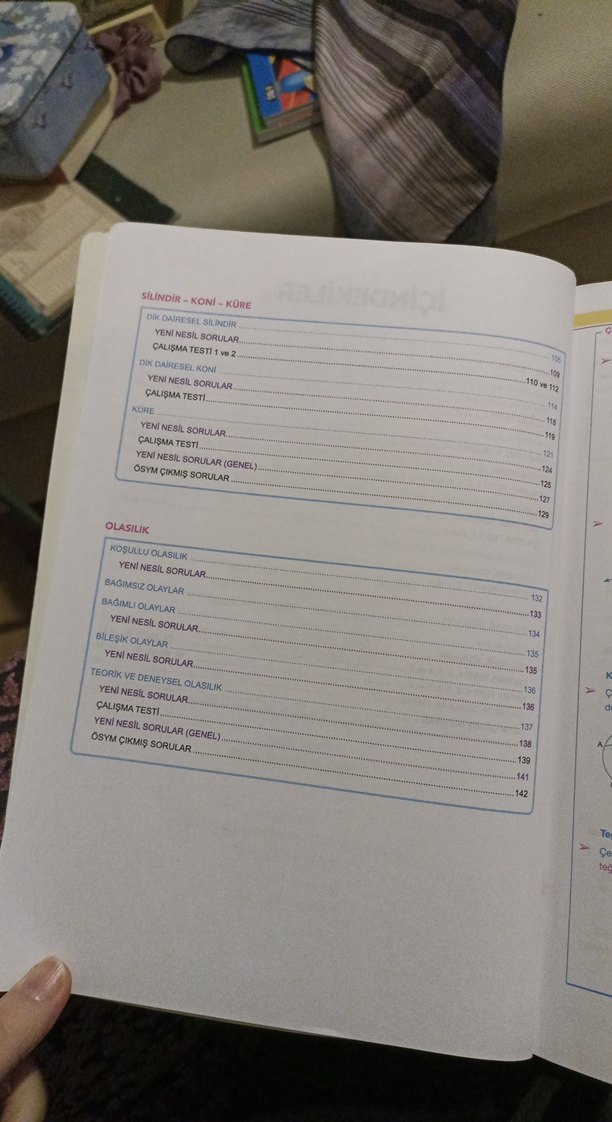 SİLİNDİR – KONİ – KÜRE
DİK DAİRESEL SİLİNDİR 105
YENİ NESİL SORULAR 109
ÇALIŞMA TESTİ 1 ve 2 110 ve 112
DİK DAİRESEL KONİ 114
YENİ NESİL SORULAR 118
ÇALIŞMA TESTİ 119
KÜRE 121
YENİ NESİL SORULAR 124
ÇALIŞMA TESTİ 125
YENİ NESİL SORULAR (GENEL) 127
ÖSYM ÇIKMIŞ SORULAR 129
OLASILIK
KOŞULLU OLASILIK 132
YENİ NESİL SORULAR 133
BAĞIMSIZ OLAYLAR 134
BAĞIMLI OLAYLAR 135
YENİ NESİL SORULAR 135
BİLEŞİK OLAYLAR 136
YENİ NESİL SORULAR 136
TEORİK VE DENEYSEL OLASILIK 137
YENİ NESİL SORULAR 138
ÇALIŞMA TESTİ 139
YENİ NESİL SORULAR (GENEL) 141
ÖSYM ÇIKMIŞ SORULAR 142